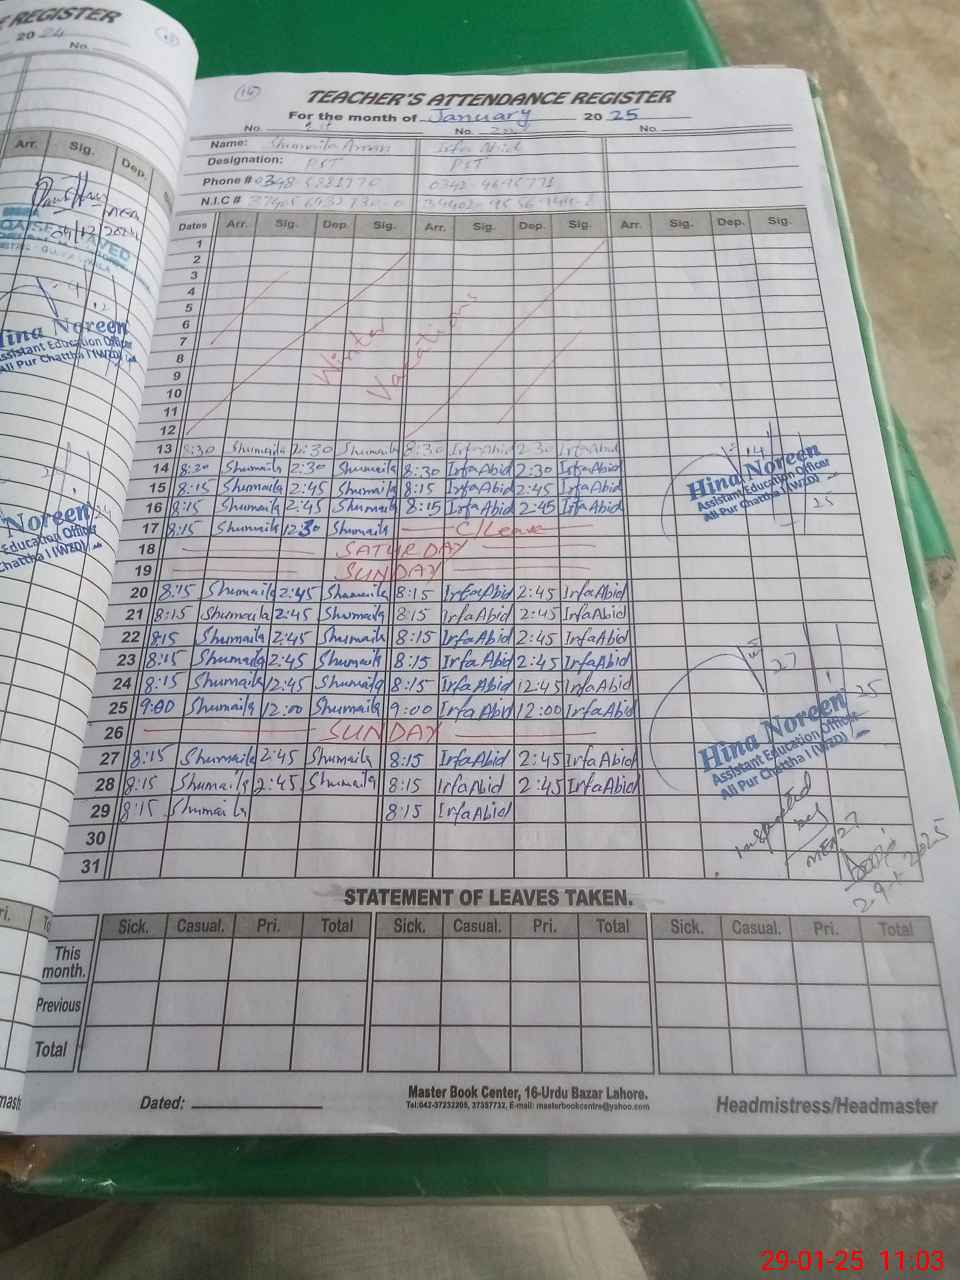 REGISTER
20 24
No.
Arr. Sig. Dep.
Hina Noreen
Assistant Education Officer
Ali Pur Chattha I (WZD)
Noreen
Education Officer
Chattha I (WZD)
16
TEACHER'S ATTENDANCE REGISTER
For the month of January 20 25
No. No. No.
Name: Shumaila Irfa Abid
Designation: PST PST
Phone #
N.I.C #
Dates Arr. Sig. Dep. Sig. Arr. Sig. Dep. Sig. Arr. Sig. Dep. Sig.
1
2
3
4
5
6
7
8
9
10
11
12
Winter Vacations
13 8:30 Shumaila 2:30 Shumaila 8:30 Irfa Abid 2:30 Irfa Abid
14 8:30 Shumaila 2:30 Shumaila 8:30 Irfa Abid 2:30 Irfa Abid
15 8:15 Shumaila 2:45 Shumaila 8:15 Irfa Abid 2:45 Irfa Abid
16 8:15 Shumaila 2:45 Shumaila 8:15 Irfa Abid 2:45 Irfa Abid
17 8:15 Shumaila 12:30 Shumaila C/Leave
18 SATURDAY
19 SUNDAY
20 8:15 Shumaila 2:45 Shumaila 8:15 Irfa Abid 2:45 Irfa Abid
21 8:15 Shumaila 2:45 Shumaila 8:15 Irfa Abid 2:45 Irfa Abid
22 8:15 Shumaila 2:45 Shumaila 8:15 Irfa Abid 2:45 Irfa Abid
23 8:15 Shumaila 2:45 Shumaila 8:15 Irfa Abid 2:45 Irfa Abid
24 8:15 Shumaila 12:45 Shumaila 8:15 Irfa Abid 12:45 Irfa Abid
25 9:00 Shumaila 12:00 Shumaila 9:00 Irfa Abid 12:00 Irfa Abid
26 SUNDAY
27 8:15 Shumaila 2:45 Shumaila 8:15 Irfa Abid 2:45 Irfa Abid
28 8:15 Shumaila 2:45 Shumaila 8:15 Irfa Abid 2:45 Irfa Abid
29 8:15 Shumaila 8:15 Irfa Abid
30
31
Hina Noreen
Assistant Education Officer
Ali Pur Chattha I (WZD)
27
25
Hina Noreen
Assistant Education Officer
Ali Pur Chattha I (WZD)
Inspected by
MEA 27
29-1-2025
STATEMENT OF LEAVES TAKEN.
Sick. Casual. Pri. Total Sick. Casual. Pri. Total Sick. Casual. Pri. Total
This month.
Previous
Total
Dated:
Master Book Center, 16-Urdu Bazar Lahore.
Tel:042-37232205, 37357732, E-mail: masterbookcentre@yahoo.com
Headmistress/Headmaster
29-01-25 11:03